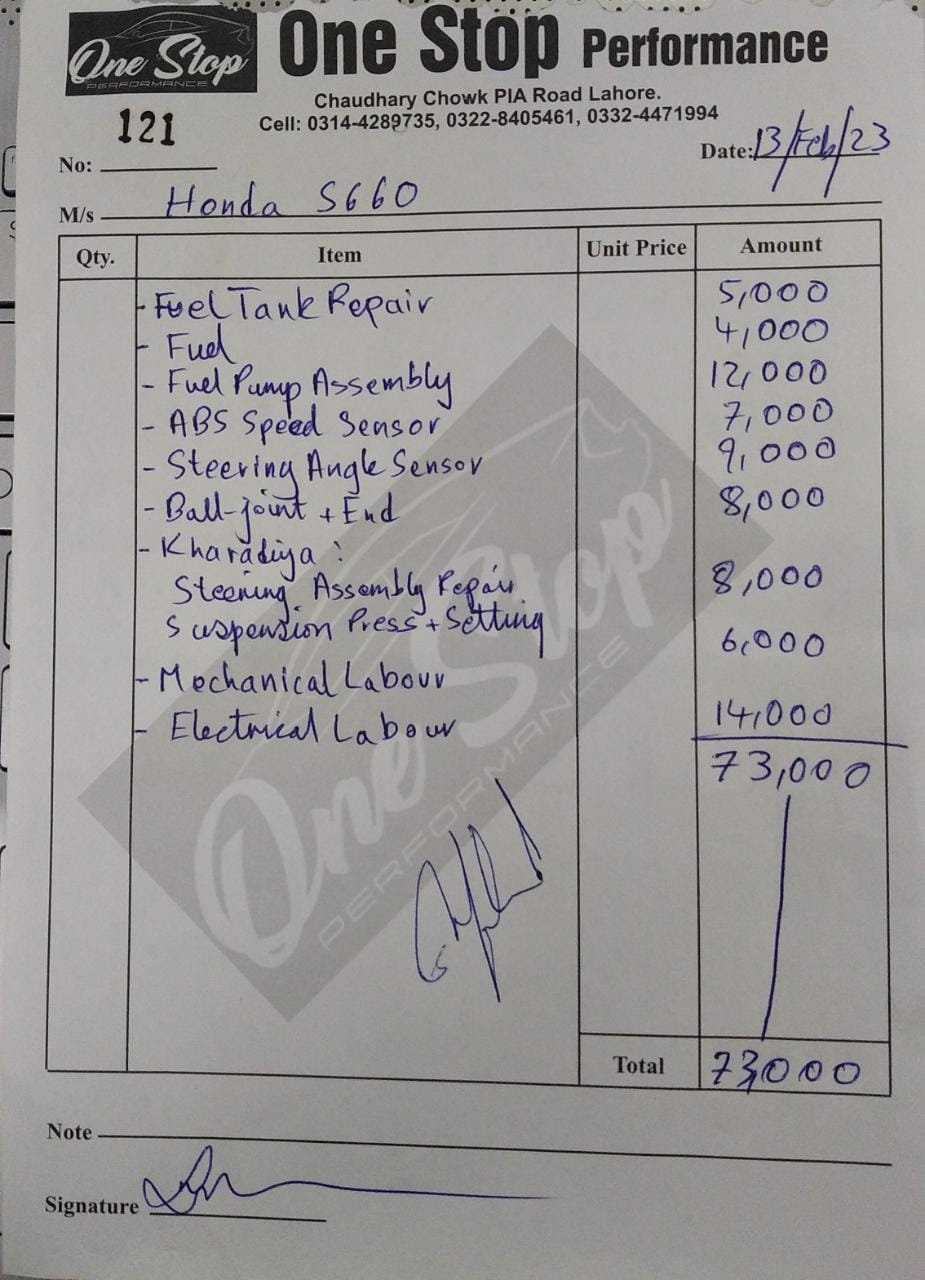 One Stop
PERFORMANCE
One Stop Performance
Chaudhary Chowk PIA Road Lahore.
Cell: 0314-4289735, 0322-8405461, 0332-4471994
121
No:
Date: 13/Feb/23
M/s Honda S660
Qty. Item Unit Price Amount
- Fuel Tank Repair 5,000
- Fuel 4,000
- Fuel Pump Assembly 12,000
- ABS Speed Sensor 7,000
- Steering Angle Sensor 9,000
- Ball-joint + End 8,000
- Kharadiya :
Steering Assembly Repair 8,000
Suspension Press + Setting
- Mechanical Labour 6,000
- Electrical Labour 14,000
73,000
One Stop
PERFORMANCE
Total 73,000
Note
Signature